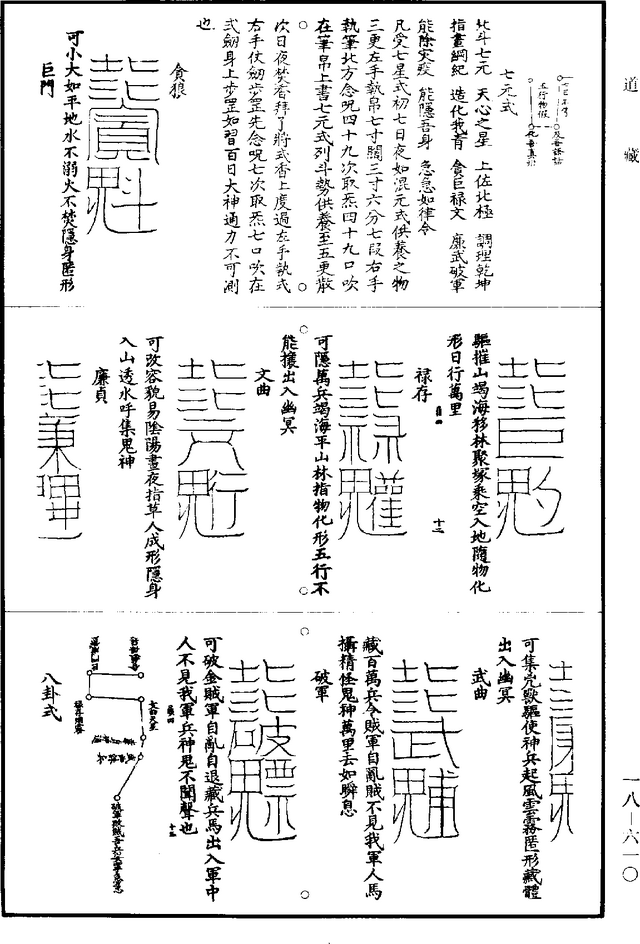 道藏
七元式
北斗七元　天心之星　上佐北極　調理乾坤
指晝綱紀　造化我育　貪巨祿文　廉武破軍
能除灾疫　能隱吾身　急急如律令
凡受七星式初七日夜如混元式供養之物
三更左手執帛七寸闊三寸六分七段右手
執筆北方念呪四十九次取炁四十九口吹
在筆帛上書七元式列斗勢供養至五更散
次日夜焚香拜了將式香上度過左手執式
右手仗劒步罡先念呪七次取炁七口吹在
式劒身上步罡如習百日大神通力不可測
也
貪狼
可小大如平地水不溺火不焚隱身匿形
巨門
驅摧山竭海移林聚塚乘空入地隨物化
形日行萬里
祿存
十二
可隱萬兵竭海平山林指物化形五行不
能攘出入幽冥
文曲
可改容貌易陰陽晝夜指草人成形隱身
入山透水呼集鬼神
廉貞
可集完獸驅使神兵起風雲霧匿形藏體
出入幽冥
武曲
藏百萬兵令賊軍自亂賊不見我軍人馬
攝精怪鬼神萬里去如瞬息
破軍
可破金賊軍自亂自退藏兵馬出入軍中
人不見我軍兵神鬼不聞聲也
十三
八卦式
一八—六一〇